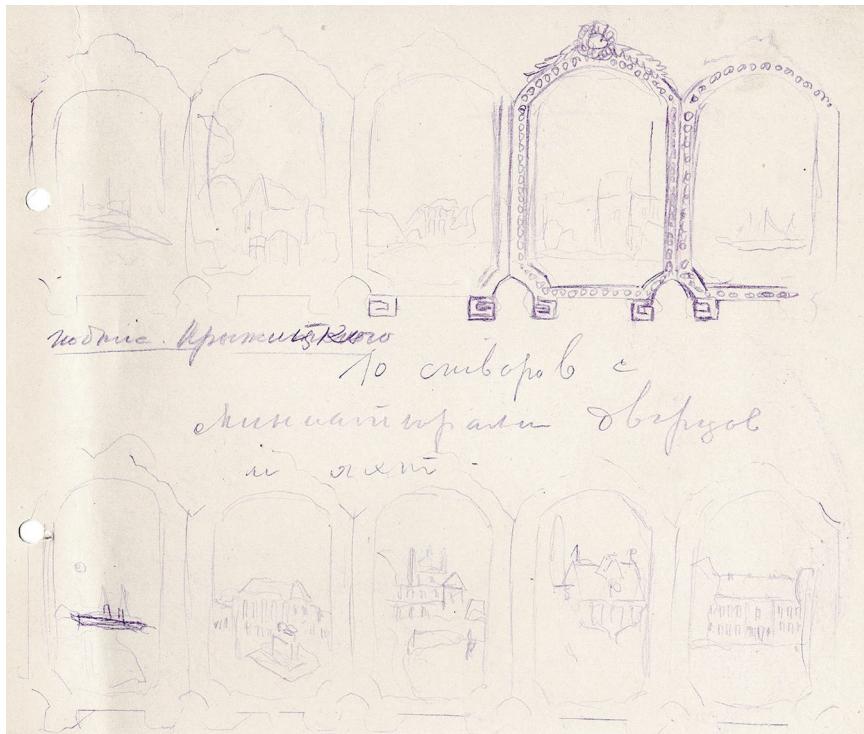 подпис. Крыжицкого
10 створов с
миниатюрами дворцов
и яхт